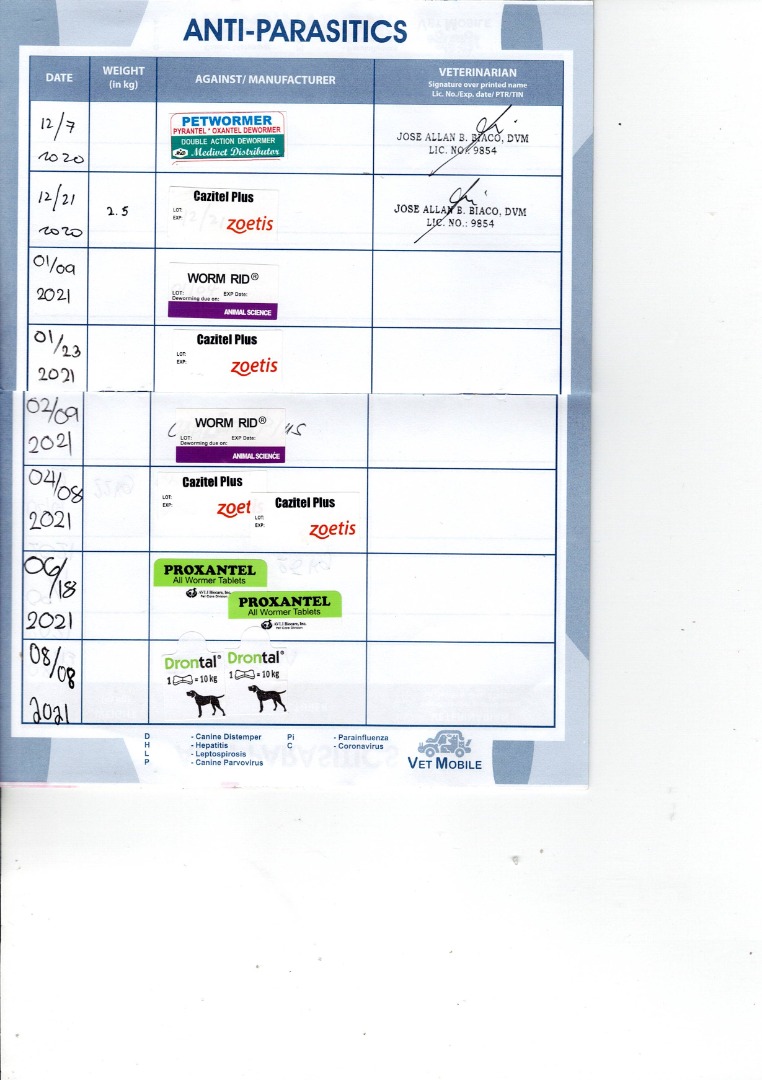 ANTI-PARASITICS
DATE
WEIGHT
(in kg)
AGAINST/ MANUFACTURER
VETERINARIAN
Signature over printed name
Lic. No./Exp. date/ PTR/TIN
12/7
2020
PETWORMER
PYRANTEL * OXANTEL DEWORMER
DOUBLE ACTION DEWORMER
Medivet Distributor
JOSE ALLAN B. BIACO, DVM
LIC. NO.: 9854
12/21
2020
2.5
Cazitel Plus
LOT:
EXP:
zoetis
JOSE ALLAN B. BIACO, DVM
LIC. NO.: 9854
01/09
2021
WORM RID®
LOT: EXP Date:
Deworming due on:
ANIMAL SCIENCE
01/23
2021
Cazitel Plus
LOT:
EXP:
zoetis
02/09
2021
WORM RID®
LOT: EXP Date:
Deworming due on:
ANIMAL SCIENCE
04/08
2021
Cazitel Plus
LOT:
EXP:
zoet
Cazitel Plus
LOT:
EXP:
zoetis
06/18
2021
PROXANTEL
All Wormer Tablets
PROXANTEL
All Wormer Tablets
08/08
2021
Drontal®
1 = 10 kg
Drontal®
1 = 10 kg
D - Canine Distemper Pi - Parainfluenza
H - Hepatitis C - Coronavirus
L - Leptospirosis
P - Canine Parvovirus
VET MOBILE